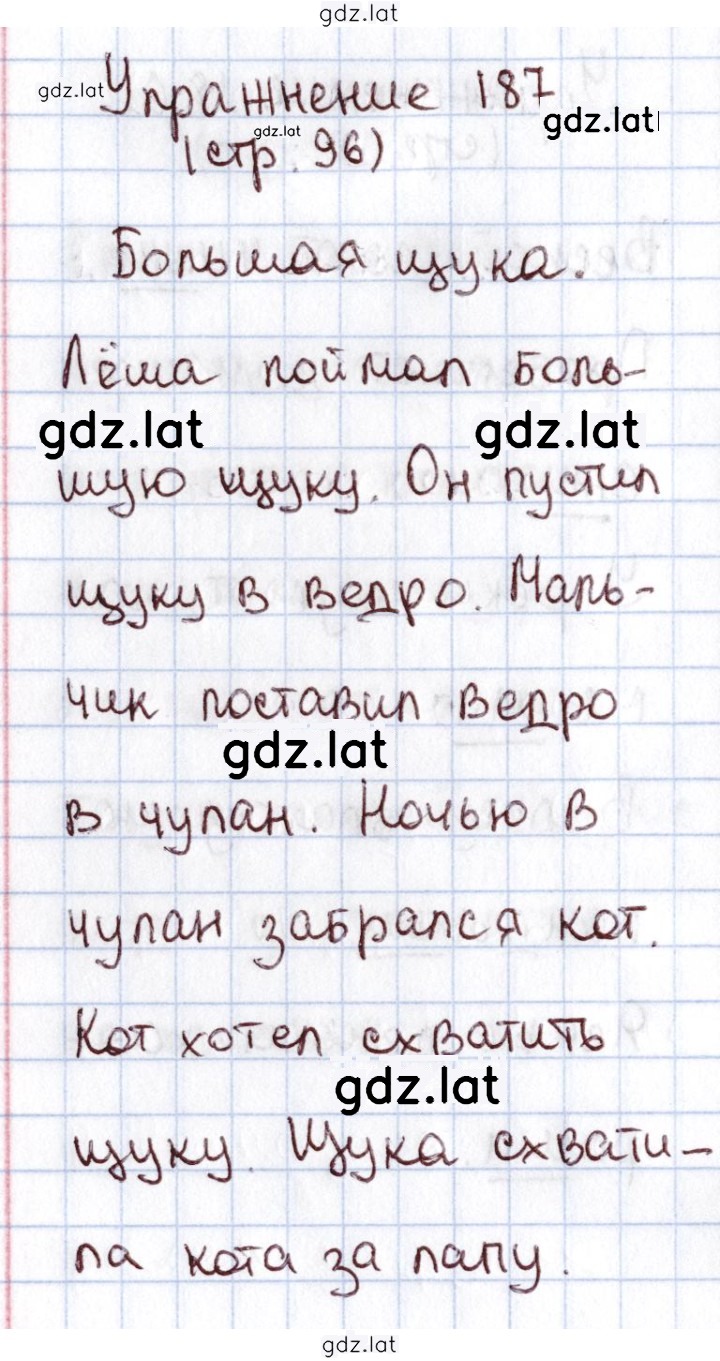 gdz.lat
gdz.lat
Упражнение 187
gdz.lat
gdz.lat
(стр. 96)
Большая щука.
Лёша поймал боль-
gdz.lat gdz.lat
шую щуку. Он пустил
щуку в ведро. Маль-
чик поставил ведро
gdz.lat
в чулан. Ночью в
чулан забрался кот.
Кот хотел схватить
gdz.lat
щуку. Щука схвати-
ла кота за лапу.
gdz.lat